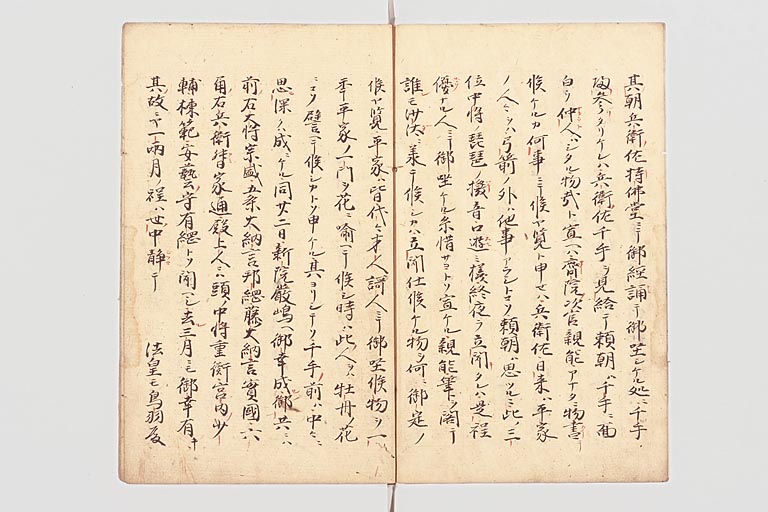 其朝兵衛佐持佛堂ニテ御經誦テ御坐シケル処ニ千手
参タリケレハ兵衛佐千手ヲ見給テ頼朝ハ千手ニ面
白ウ仲人ハシタル物哉ト宣ハ斎院次官親能アナタニ物書
候ケルカ何事ニ候ヤ覧ト申セハ兵衛佐日来ハ平家
ノ人々ハ弓箭ノ外ハ他事アラシトコソ頼朝ハ思ツルニ此ノ三
位中将ノ琵琶ノ撥音口遊ノ様終夜ラ立聞ツルハ是程
優ナル人ニテ御坐ケル糸惜サヨトソ宣ケル親能筆ヲ閣テ
誰モ沙汰ニ義テ候シカハ立聞仕候ケル物ヲ何ニ御定ノ
候ヤ覧平家ハ皆代々才人謌人ニテ御坐候物ヲ一
年平家ノ一門ヲ花ニ喩ヘテ候シ時ハ此人ヲハ牡丹ノ花
ニコソ譬ヘテ候シカトソ申ケル其ヨリシテソ千手前ハ中々ニ
思深クハ成ニケル同廿二日新院厳嶋ヘ御幸成御共ニハ
前右大将宗盛五条大納言邦綱藤大納言實國ハ六
角右兵衛督家通殿上人ニハ頭ノ中将重衡宮内少
輔棟範安藝守有綱トソ聞ヘシ去三月ニモ御幸有キ
其故ニヤ一両月ノ程ハ世中静テ 法皇モ鳥羽殿